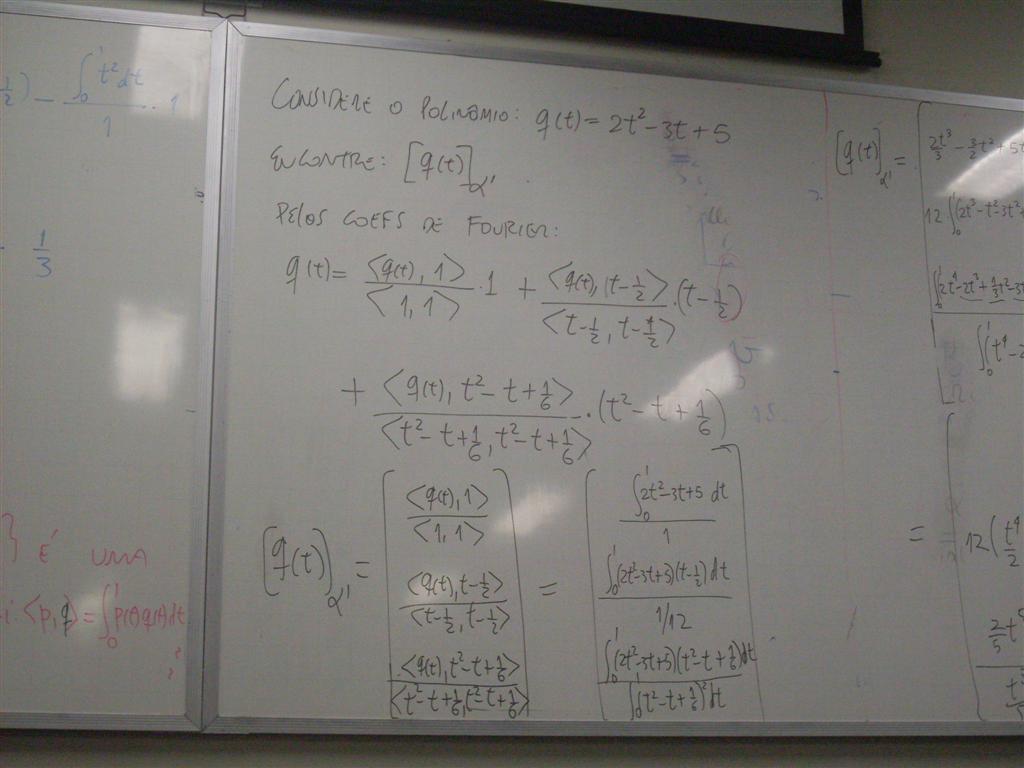 ½) - ∫₀¹ t² dt / 1 · 1
1/3
} É UMA
i: <p,q> = ∫₀¹ p(t)q(t)dt
CONSIDERE O POLINÔMIO: q(t) = 2t² - 3t + 5
ENCONTRE: [q(t)]α'
PELOS COEFS DE FOURIER:
q(t) = <q(t), 1> / <1, 1> · 1 + <q(t), (t-½)> / <t-½, t-½> · (t-½)
+ <q(t), t² - t + 1/6> / <t² - t + 1/6, t² - t + 1/6> · (t² - t + 1/6)
[q(t)]α' = [ <q(t), 1> / <1, 1> ] = [ ∫₀¹ 2t² - 3t + 5 dt / 1 ]
<q(t), t-½> / <t-½, t-½> ∫₀¹ (2t² - 3t + 5)(t-½) dt / 1/12
<q(t), t² - t + 1/6> / <t² - t + 1/6, t² - t + 1/6> ∫₀¹ (2t² - 3t + 5)(t² - t + 1/6) dt / ∫₀¹ (t² - t + 1/6)² dt
[q(t)]α' = [ 2t³/3 - 3/2 t² + 5t
12 ∫₀¹ (2t³ - t² - 3t²
∫₀¹ 2t⁴ - 2t³ +
∫₀¹ t⁴ - 2
= [
12 ( t⁴/2
2/5 t⁵